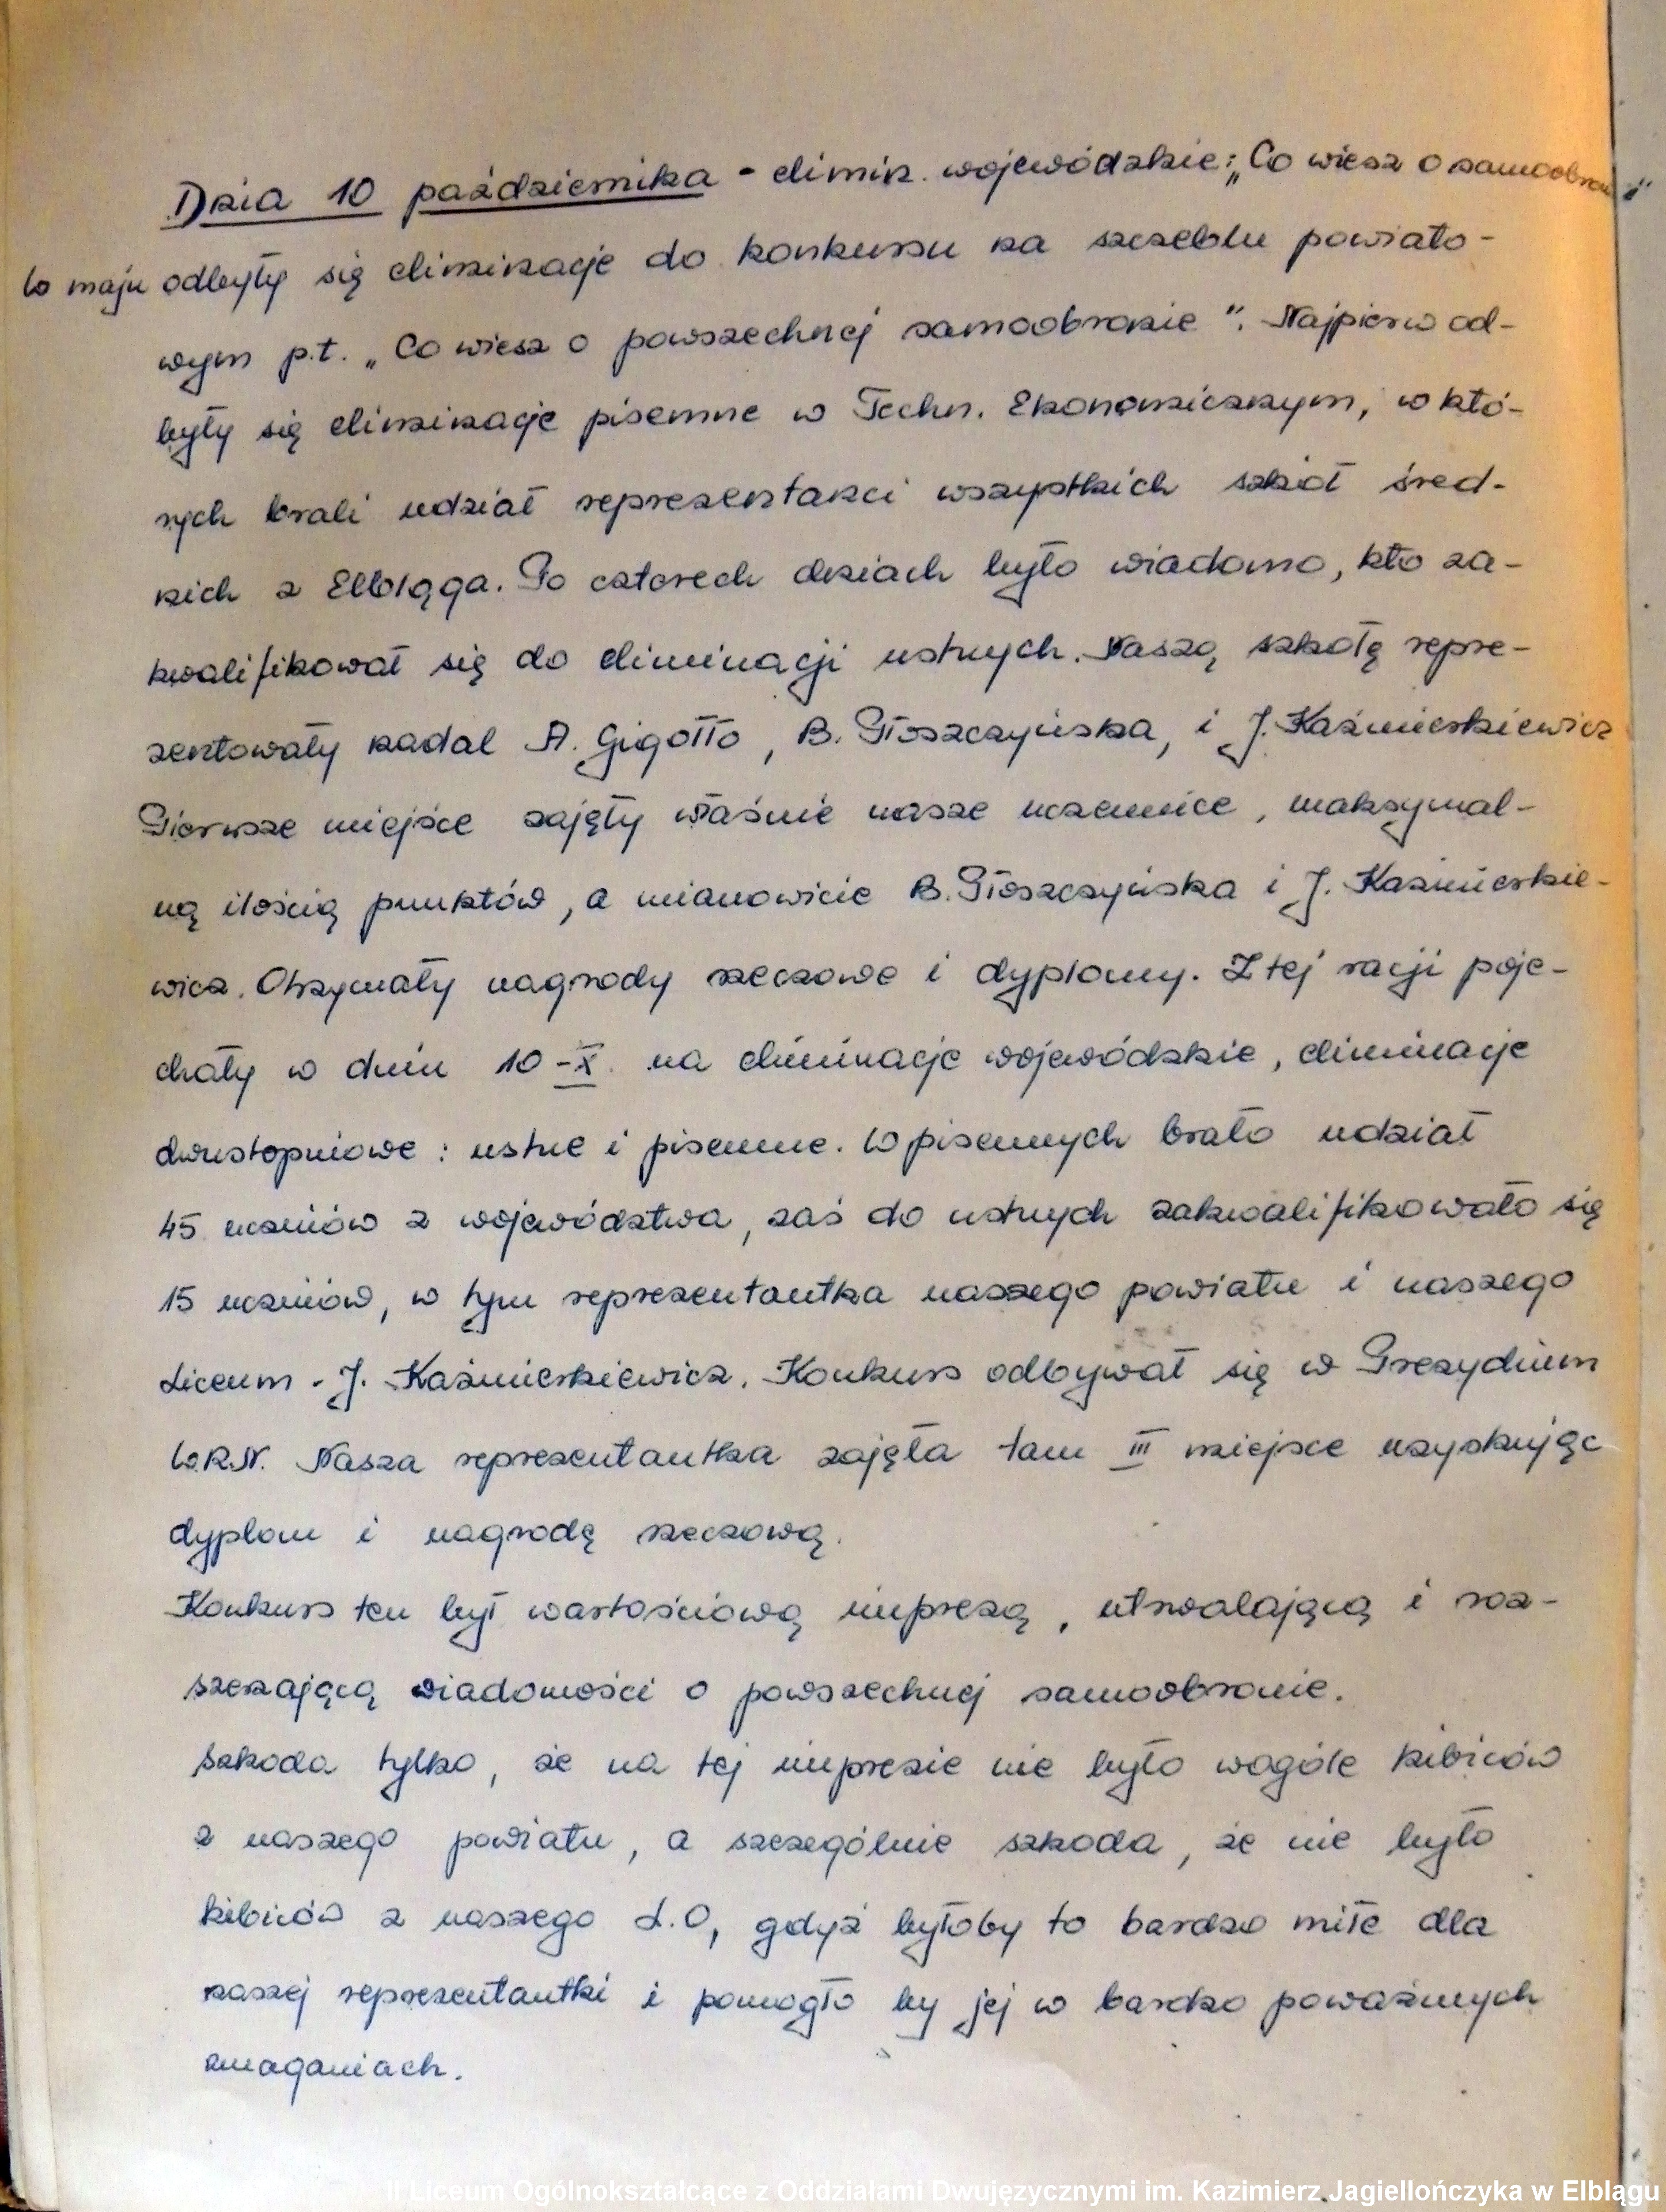 Dnia 10 października - elimin. wojewódzkie: „Co wiesz o samoobronie"
W maju odbyły się eliminacje do konkursu na szczeblu powiato-
wym p.t. „Co wiesz o powszechnej samoobronie". Najpierw od-
były się eliminacje pisemne w Techn. Ekonomicznym, w któ-
rych brali udział reprezentanci wszystkich szkół śred-
nich z Elbląga. Po czterech dniach było wiadomo, kto za-
kwalifikował się do eliminacji ustnych. Naszą szkołę repre-
zentowały nadal A. Gigołło, B. Płoszczyńska, i J. Kaźmierkiewicz
Pierwsze miejsce zajęły właśnie nasze uczennice, maksymal-
ną ilością punktów, a mianowicie B. Płoszczyńska i J. Kaźmierkie-
wicz. Otrzymały nagrody rzeczowe i dyplomy. Z tej racji poje-
chały w dniu 10-X. na eliminacje wojewódzkie, eliminacje
dwustopniowe: ustne i pisemne. W pisemnych brało udział
45 uczniów z województwa, zaś do ustnych zakwalifikowało się
15 uczniów, w tym reprezentantka naszego powiatu i naszego
Liceum - J. Kaźmierkiewicz. Konkurs odbywał się w Prezydium
W.R.N. Nasza reprezentantka zajęła tam III miejsce uzyskując
dyplom i nagrodę rzeczową.
Konkurs ten był wartościową imprezą, utrwalającą i roz-
szerzającą wiadomości o powszechnej samoobronie.
Szkoda tylko, że na tej imprezie nie było wogóle kibiców
z naszego powiatu, a szczególnie szkoda, że nie było
kibiców z naszego L.O, gdyż byłoby to bardzo miłe dla
naszej reprezentantki i pomogło by jej w bardzo poważnych
zmaganiach.
II Liceum Ogólnokształcące z Oddziałami Dwujęzycznymi im. Kazimierz Jagiellończyka w Elblągu